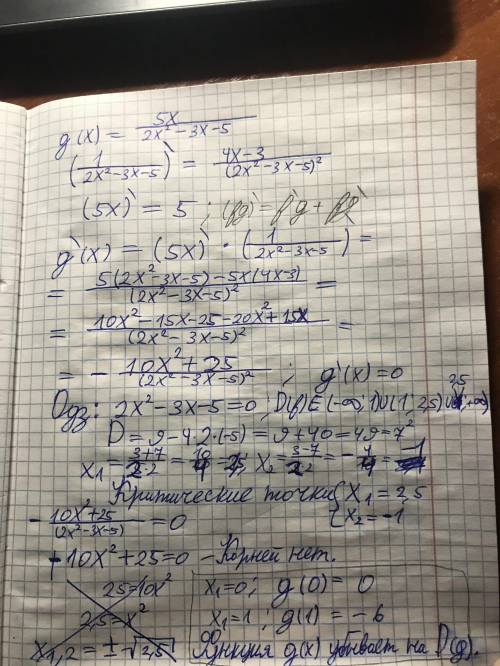 g(x) = 5x / (2x² - 3x - 5)
(1 / (2x² - 3x - 5))` = (4x - 3) / (2x² - 3x - 5)²
(5x)` = 5 ; (fg)` = f`g + fg`
g`(x) = (5x)` · (1 / (2x² - 3x - 5)) =
= (5(2x² - 3x - 5) - 5x(4x - 3)) / (2x² - 3x - 5)² =
= (10x² - 15x - 25 - 20x² + 15x) / (2x² - 3x - 5)² =
= - (10x² + 25) / (2x² - 3x - 5)² ; g`(x) = 0
Одз: 2x² - 3x - 5 = 0 ; D(f) E (-∞, 1) U (1, 2,5) U (2,5; +∞)
D = 9 - 4·2·(-5) = 9 + 40 = 49 = 7²
x₁ = (3+7) / 2·2 = 10/4 = 2,5 x₂ = (3-7) / 2·2 = -4/4 = -1
Критические точки { x₁ = 2,5
{ x₂ = -1
- (10x² + 25) / (2x² - 3x - 5) = 0
-10x² + 25 = 0 - Корней нет.
25 = 10x² x₁ = 0 ; g(0) = 0
2,5 = x² x₁ = 1 ; g(1) = -6
x₁,₂ = ± √2,5 Функция g(x) убывает на D(g).